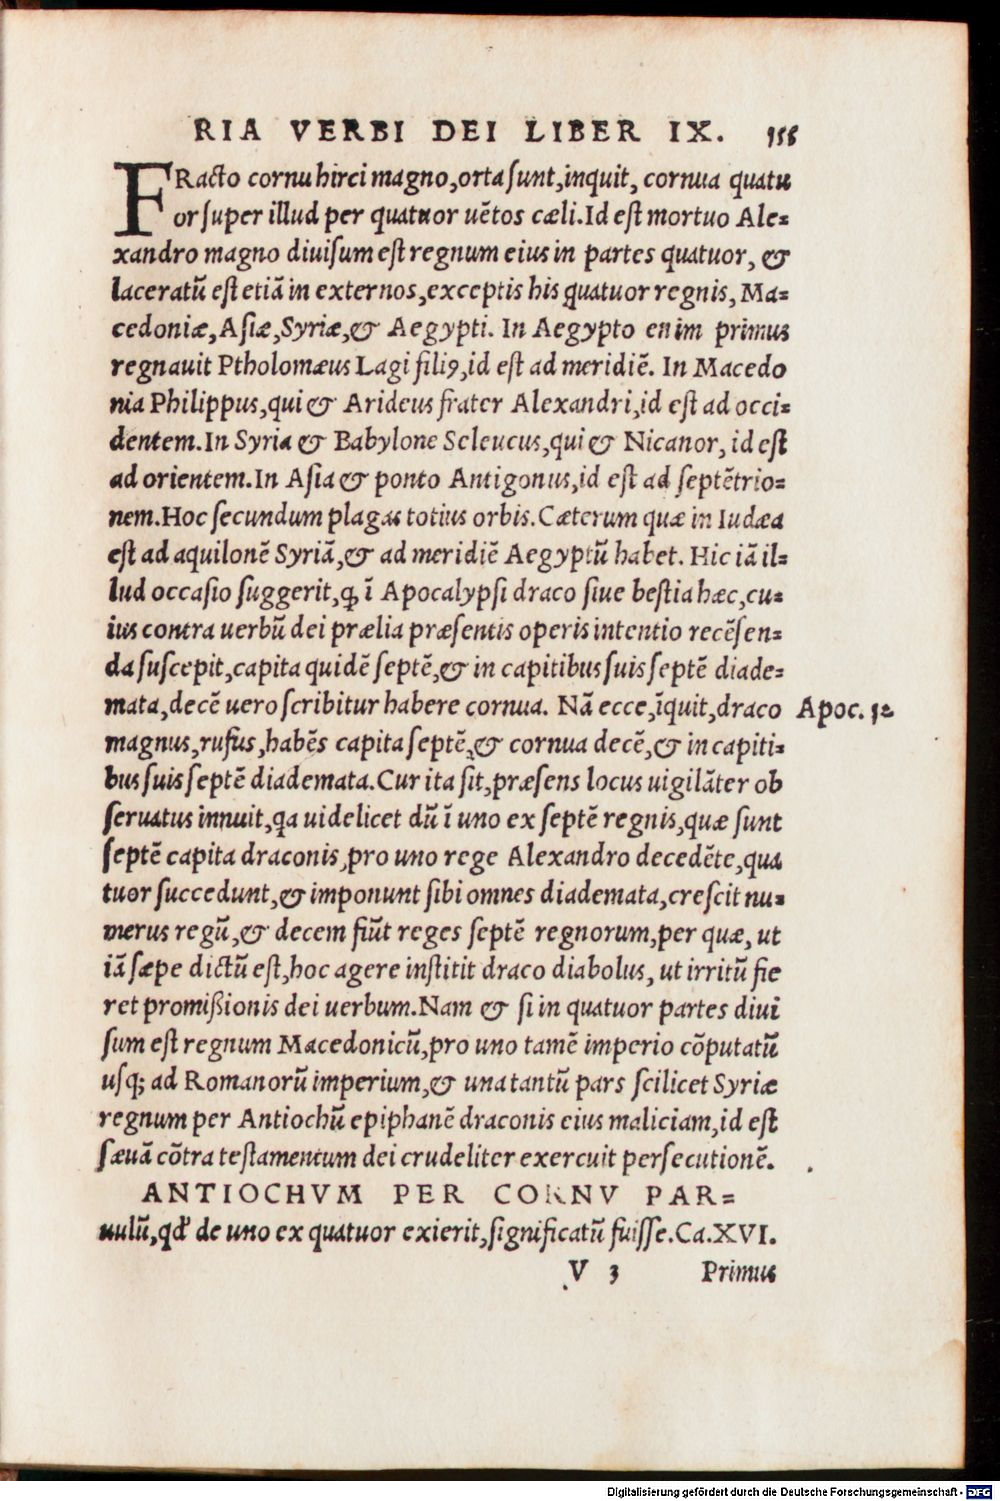 RIA VERBI DEI LIBER IX. 155
FRacto cornu hirci magno, orta sunt, inquit, cornua quatu
or super illud per quatuor uẽtos cæli. Id est mortuo Ale=
xandro magno diuisum est regnum eius in partes quatuor, &
laceratũ est etiã in externos, exceptis his quatuor regnis, Ma=
cedoniæ, Asiæ, Syriæ, & Aegypti. In Aegypto enim primus
regnauit Ptholomæus Lagi filiꝰ, id est ad meridiẽ. In Macedo
nia Philippus, qui & Arideus frater Alexandri, id est ad occi=
dentem. In Syria & Babylone Seleucus, qui & Nicanor, id est
ad orientem. In Asia & ponto Antigonus, id est ad septẽtrio=
nem. Hoc secundum plagas totius orbis. Cæterum quæ in Iudæa
est ad aquilonẽ Syriã, & ad meridiẽ Aegyptũ habet. Hic iã il=
lud occasio suggerit, ꝙ ĩ Apocalypsi draco siue bestia hæc, cu=
ius contra uerbũ dei prælia præsentis operis intentio recẽsen=
da suscepit, capita quidẽ septẽ, & in capitibus suis septẽ diade=
mata, decẽ uero scribitur habere cornua. Nã ecce, ĩquit, draco
Apoc. 12
magnus, rufus, habẽs capita septẽ, & cornua decẽ, & in capiti=
bus suis septẽ diademata. Cur ita sit, præsens locus uigilãter ob
seruatus innuit, qa uidelicet dũ ĩ uno ex septẽ regnis, quæ sunt
septẽ capita draconis, pro uno rege Alexandro decedẽte, qua
tuor succedunt, & imponunt sibi omnes diademata, crescit nu=
merus regũ, & decem fiũt reges septẽ regnorum, per quæ, ut
iã sæpe dictũ est, hoc agere institit draco diabolus, ut irritũ fie
ret promißionis dei uerbum. Nam & si in quatuor partes diui
sum est regnum Macedonicũ, pro uno tamẽ imperio cõputatũ
usq; ad Romanorũ imperium, & una tantũ pars scilicet Syriæ
regnum per Antiochũ epiphanẽ draconis eius maliciam, id est
sæuã cõtra testamentum dei crudeliter exercuit persecutionẽ.
ANTIOCHVM PER CORNV PAR=
uulũ, qd' de uno ex quatuor exierit, significatũ fuisse. Ca. XVI.
V 3 Primus
Digitalisierung gefördert durch die Deutsche Forschungsgemeinschaft - DFG